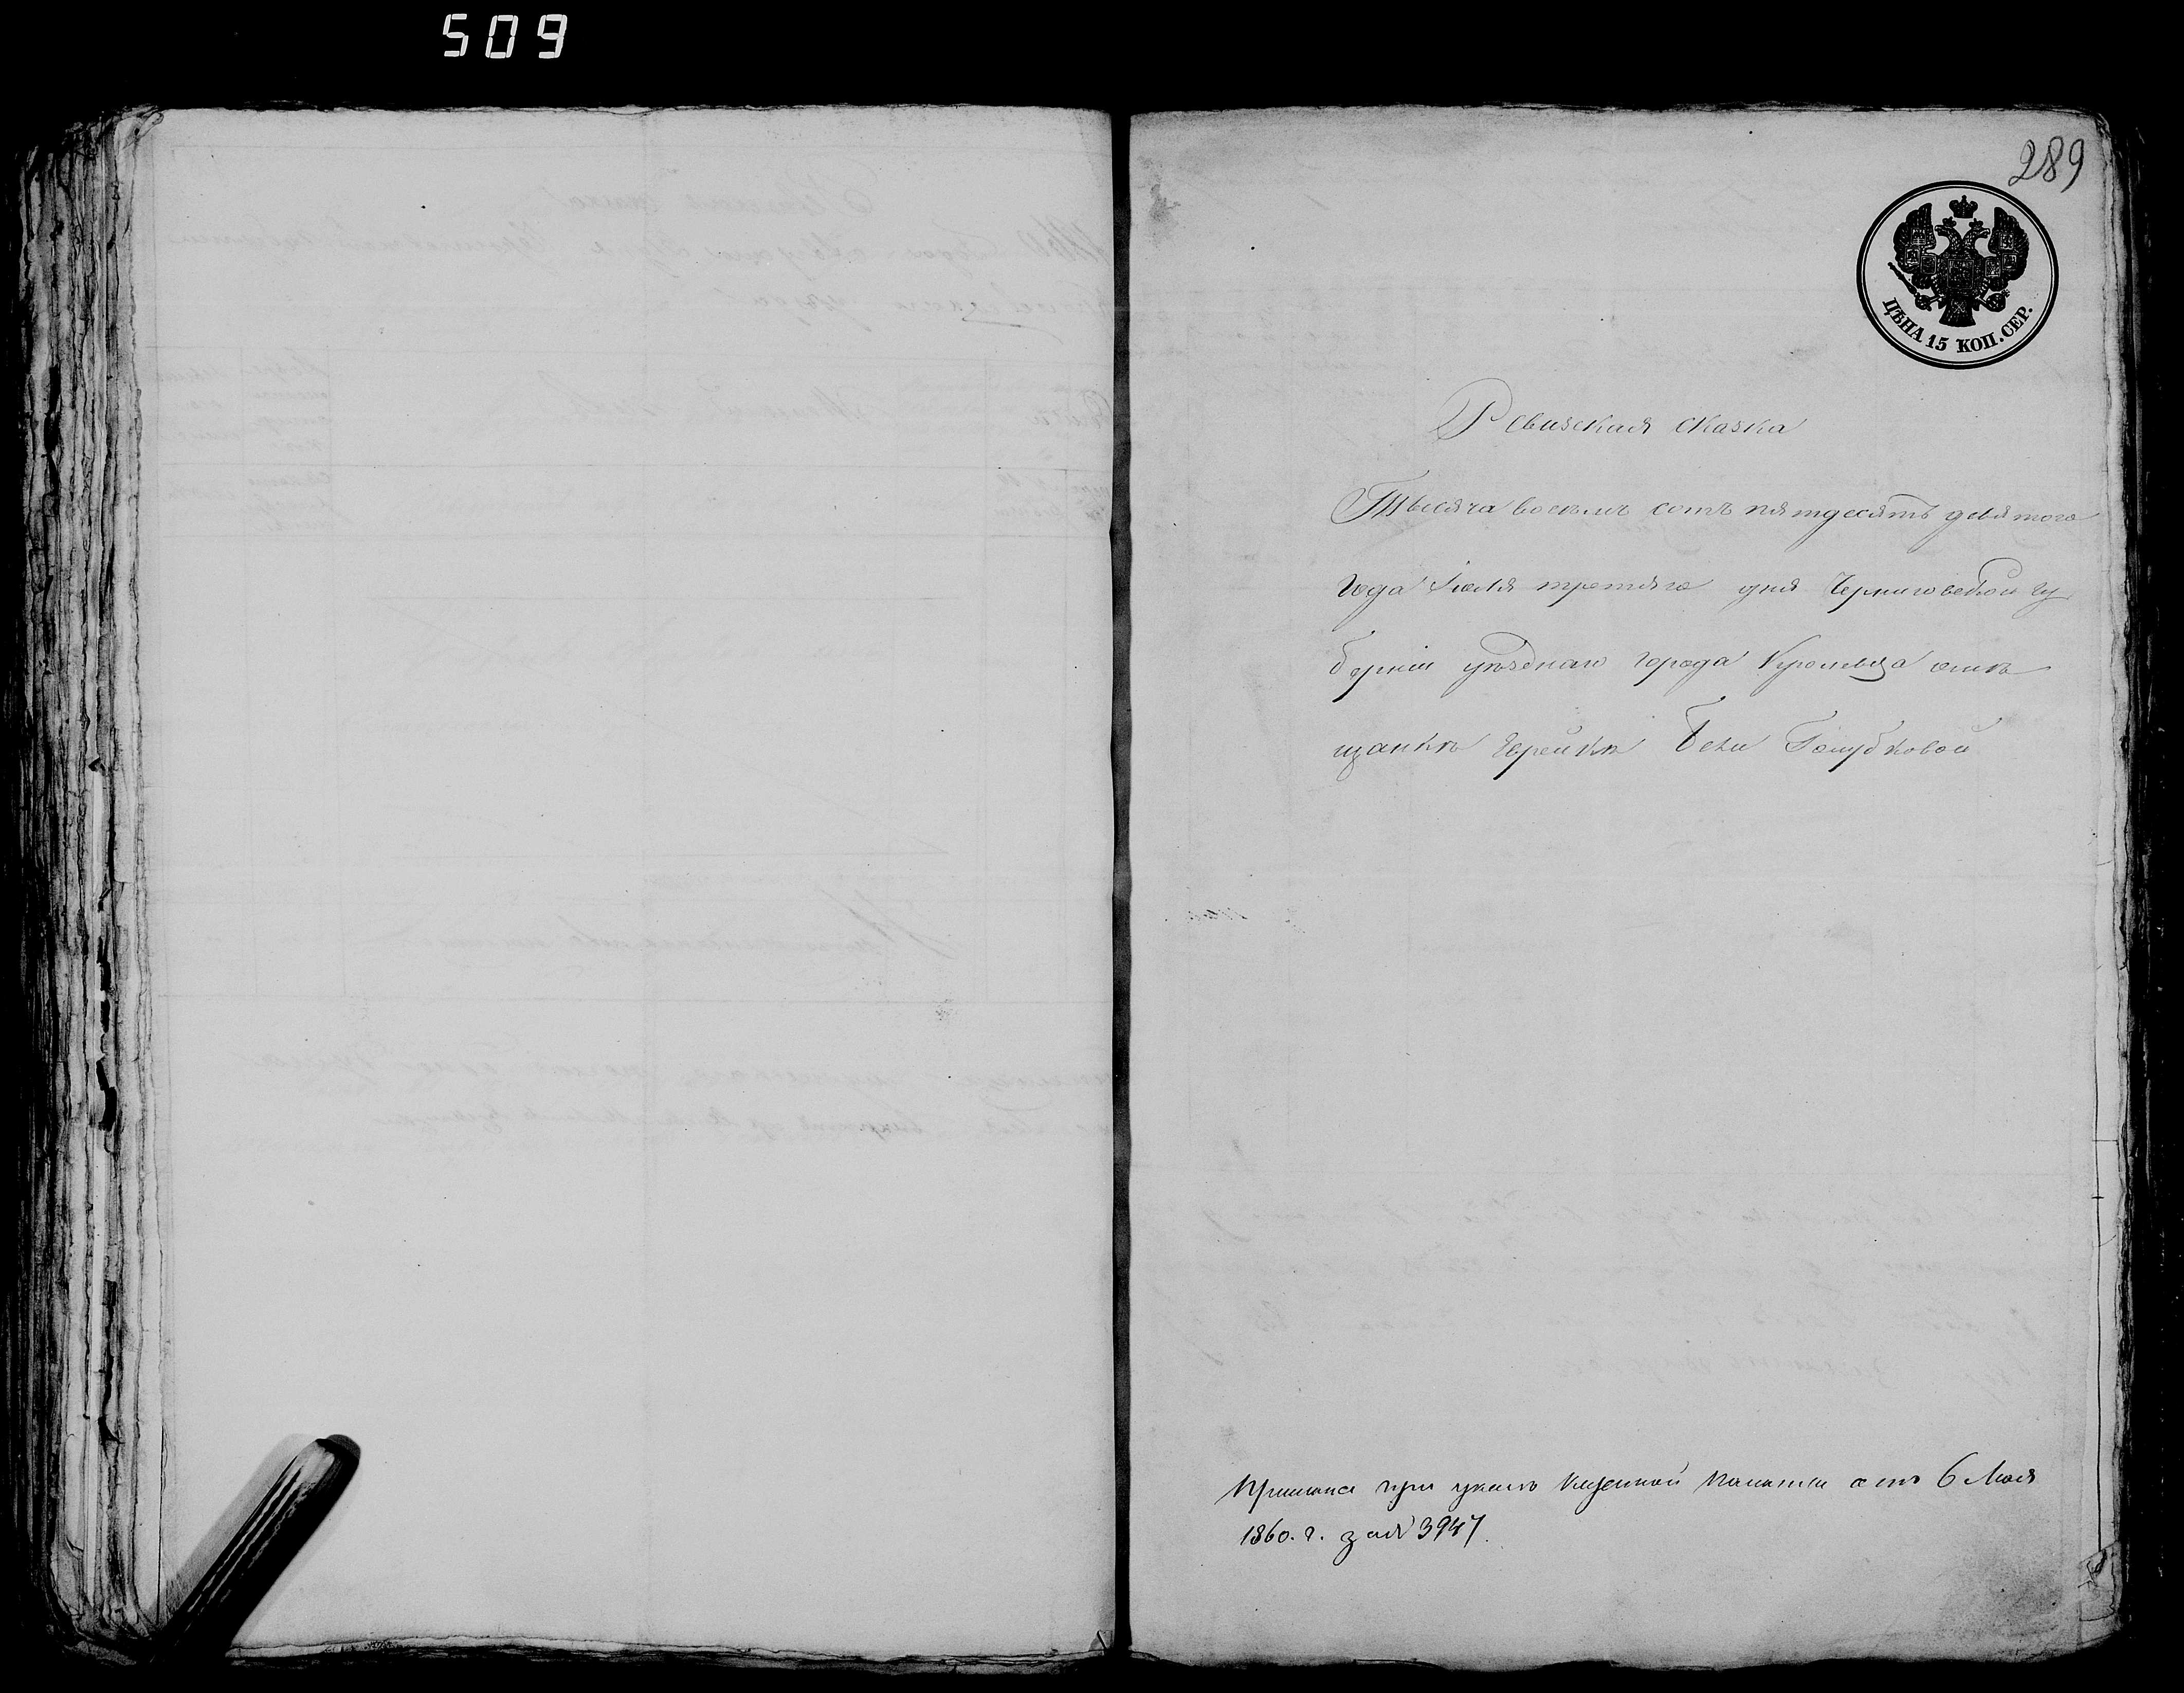 509
289
ЦѢНА 15 КОП. СЕР.
Ревизская сказка
Тысяча восемь сотъ пятдесятъ девятого
года Іюля третьяго дня Черниговской гу
берніи уѣзднаго города Кролевца о мѣ
щанкѣ Еврейкѣ Бейли Голубковой
Прислана при указѣ Казенной Палаты отъ 6 Мая
1860. г. за № 3947.